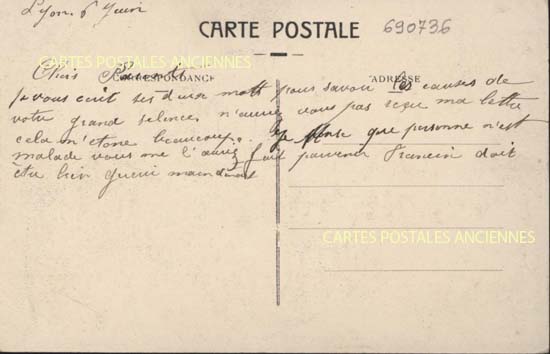 Lyon 6
CARTE POSTALE
690736
CARTES POSTALES ANCIENNES
Chers Parents
CORRESPONDANCE
ADRESSE
je vous ecrit ses deux mott pour savoir les causes de
votre grand silence n'auriez vous pas reçu ma lettre
cela m'etone beaucoup. Je pense que personne n'est
malade vous me l'auriez fait parvenir Francin doit
etre bien gueri maintenant
CARTES POSTALES ANCIENNES